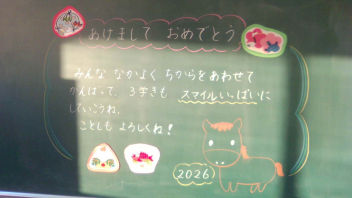 あけまして おめでとう
みんな なかよく ちからをあわせて
がんばって、3学きも スマイルいっぱいに
していこうね。
ことしも よろしくね！
2026